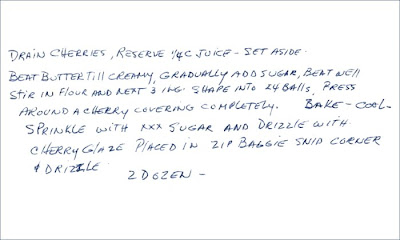 DRAIN CHERRIES, RESERVE 1/4C JUICE - SET ASIDE.
BEAT BUTTER Till CREAMY, GRADUALLY ADD SUGAR, BEAT WEll
STIR IN FLOUR AND NEXT 3 ING. SHAPE INTO 24 BAllS. PRESS
AROUND A CHERRY COVERING COMPLETELY. BAKE - COOL-
SPRINKLE WITH XXX SUGAR AND DRIZZLE WITH
CHERRY GLAZE PLACED IN ZIP BAGGIE SNIP CORNER
& DRIZZLE.
2 DOZEN -